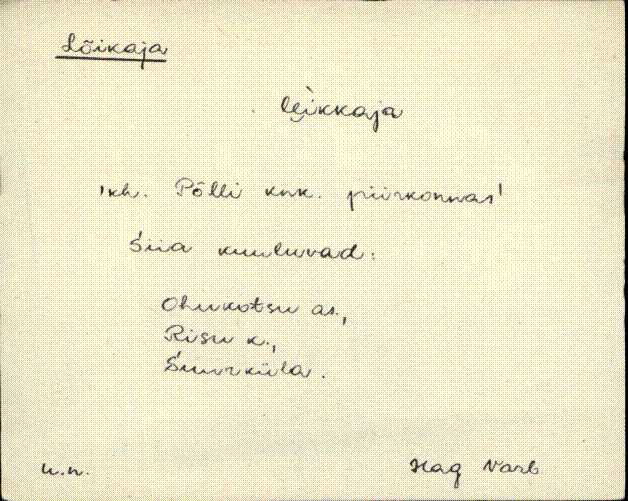 Lõikaja
lẹikkaja
'kh. Põlli knk. piirkonnas'
Siia kuuluvad:
Ohukotsu as.,
Risu k.,
Suurküla.
u.n.
Hag Varb